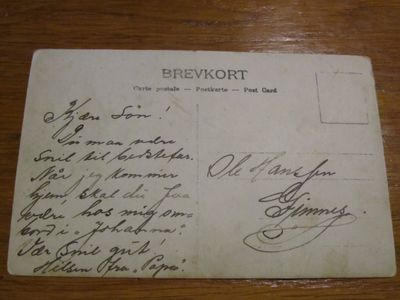 BREVKORT
Carte postale — Postkarte — Post Card
Kjære Sön!
Du maa være
Snil til bedstefar.
Når jeg kommer
hjem, skal du faa
være hos mig om-
bord i „Johanna".
Vær Snil gut!
Hilsen fra „Papa".
Ole Hanssen
Gimnes.